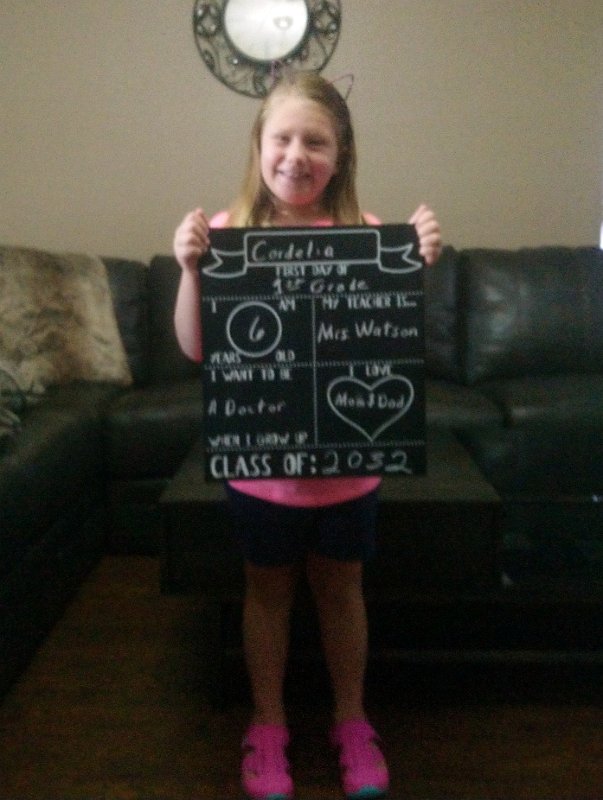 Cordelia
FIRST DAY OF
1st Grade
I AM
6
YEARS OLD
MY TEACHER IS...
Mrs. Watson
I WANT TO BE
A Doctor
WHEN I GROW UP
I LOVE
Mom & Dad
CLASS OF: 2032